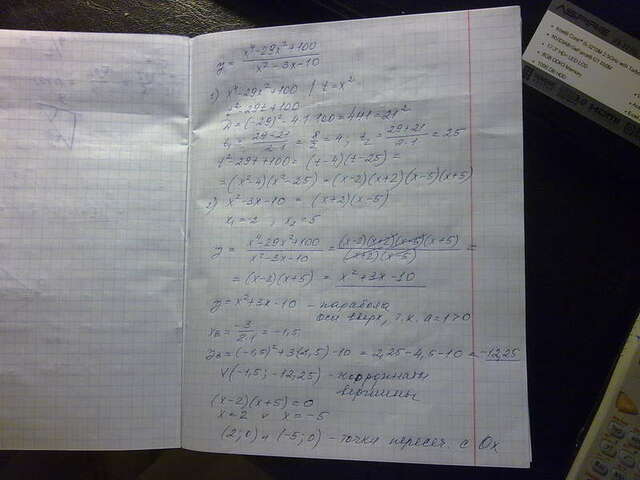 y = x⁴-29x²+100 / x²-3x-10
1) x⁴-29x²+100 / t=x²
t²-29t+100
D=(-29)²-4·1·100=441=21²
t₁= 29-21 / 2·1 = 8/2 = 4, t₂ = 29+21 / 2·1 = 25
t²-29t+100= (t-4)(t-25) =
=(x²-4)(x²-25)=(x-2)(x+2)(x-5)(x+5)
2) x²-3x-10 = (x+2)(x-5)
x₁=-2 , x₂=5
y = x⁴-29x²+100 / x²-3x-10 = (x-2)(x+2)(x-5)(x+5) / (x+2)(x-5) =
= (x-2)(x+5) = x²+3x-10
y=x²+3x-10 - парабола
оси вверх, т.к. a=1>0
xв= -3 / 2·1 = -1,5
yв=(-1,5)²+3(-1,5)-10 = 2,25-4,5-10 = -12,25
V(-1,5; -12,25) - координаты
вершины
(x-2)(x+5)=0
x=2 v x=-5
(2;0) и (-5;0) - точки пересеч. с Ox
ASPIRE